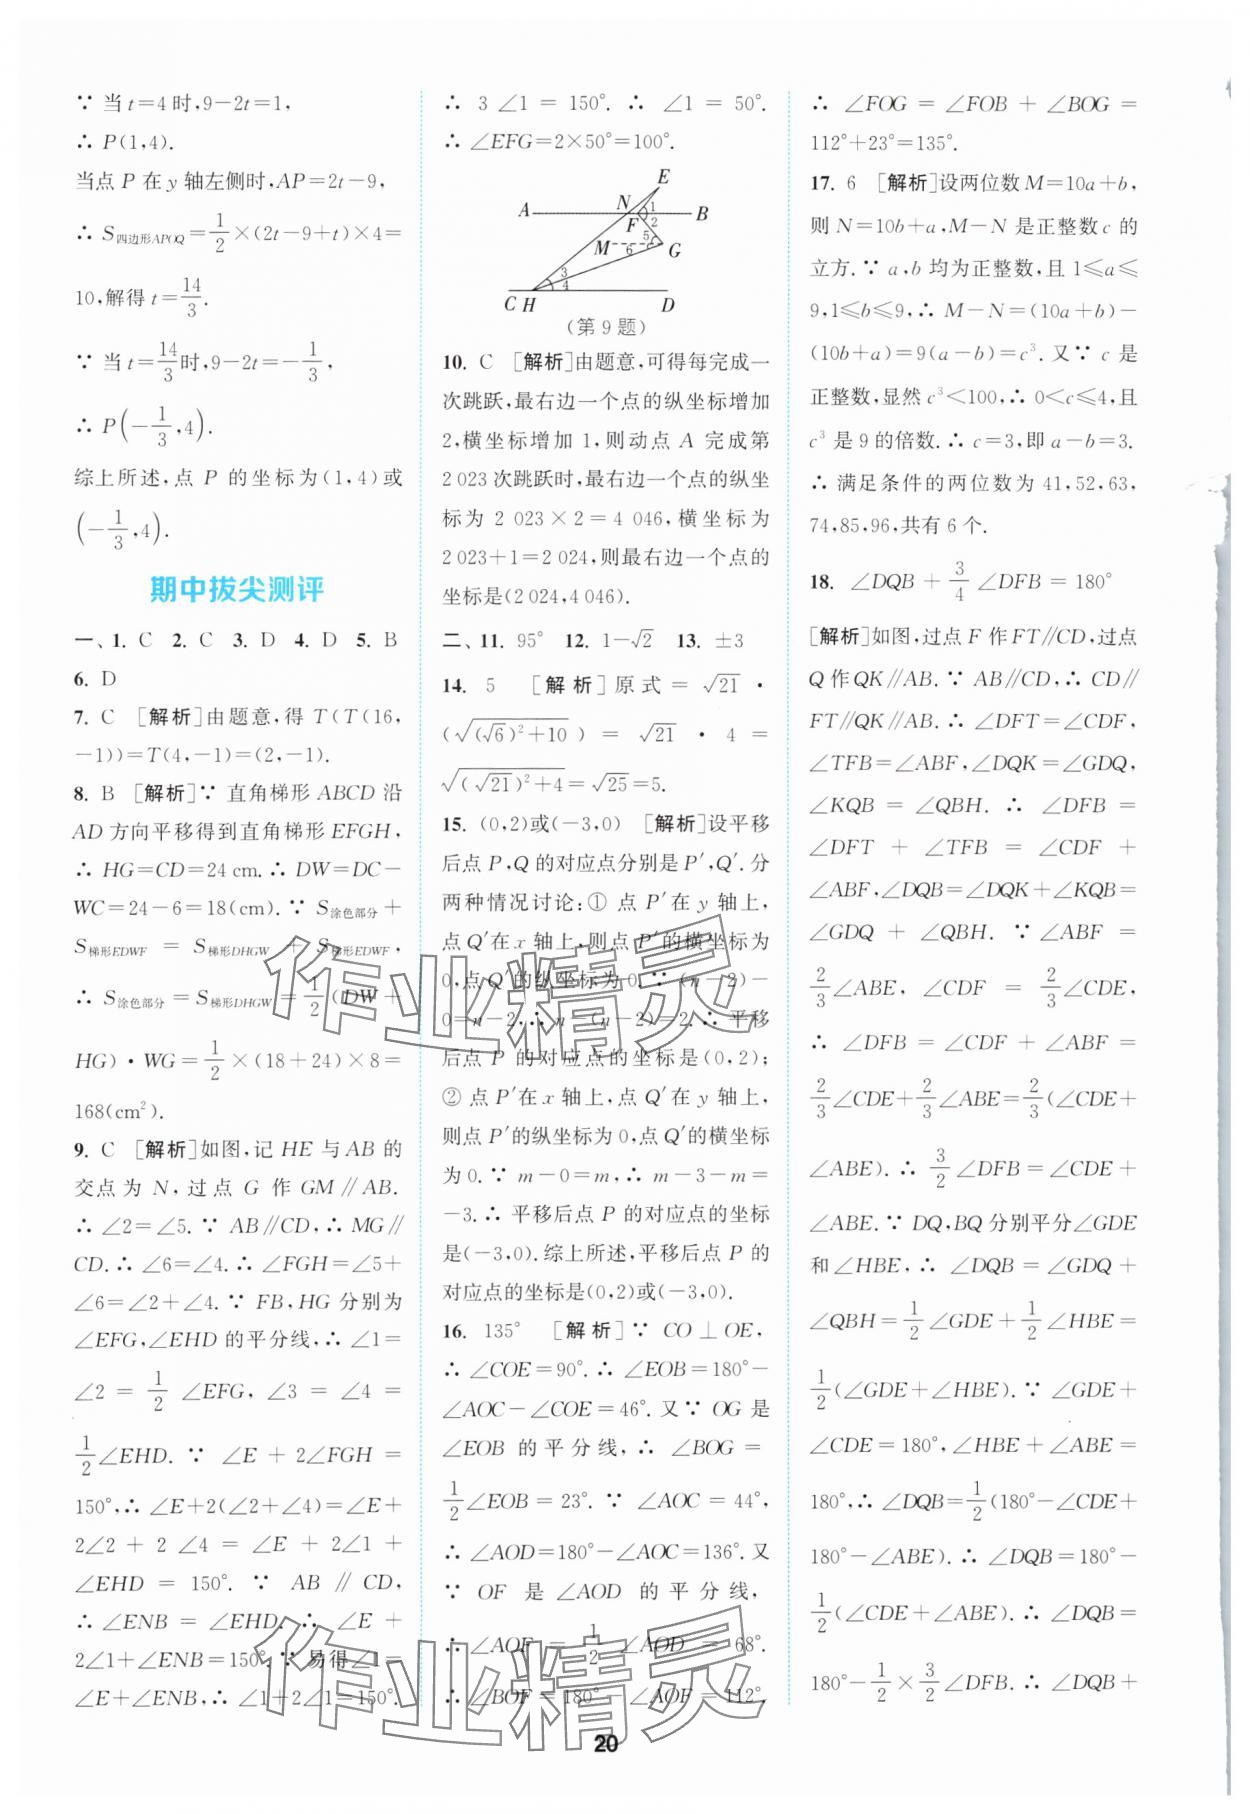 ∵ 当 t=4 时,9-2t=1,
∴ P(1,4).
当点 P 在 y 轴左侧时,AP=2t-9,
∴ S四边形APOQ=1/2×(2t-9+t)×4=
10,解得 t=14/3.
∵ 当 t=14/3时,9-2t=-1/3,
∴ P(-1/3,4).
综上所述,点 P 的坐标为(1,4)或
(-1/3,4).
期中拔尖测评
一、1. C 2. C 3. D 4. D 5. B
6. D
7. C [解析]由题意,得 T(T(16,
-1))=T(4,-1)=(2,-1).
8. B [解析]∵ 直角梯形 ABCD 沿
AD 方向平移得到直角梯形 EFGH,
∴ HG=CD=24 cm.∴ DW=DC-
WC=24-6=18(cm). ∵ S涂色部分+
S梯形EDWF = S梯形DHGW + S梯形EDWF,
∴ S涂色部分=S梯形DHGW=1/2(DW+
HG)·WG=1/2×(18+24)×8=
168(cm²).
9. C [解析]如图,记 HE 与 AB 的
交点为 N,过点 G 作 GM∥AB.
∴ ∠2=∠5.∵ AB∥CD,∴ MG∥
CD.∴ ∠6=∠4.∴ ∠FGH=∠5+
∠6=∠2+∠4.∵ FB,HG 分别为
∠EFG,∠EHD 的平分线,∴ ∠1=
∠2 = 1/2 ∠EFG, ∠3 = ∠4 =
1/2∠EHD. ∵ ∠E + 2∠FGH =
150°,∴ ∠E+2(∠2+∠4)=∠E+
2∠2 + 2 ∠4 = ∠E + 2∠1 +
∠EHD = 150°. ∵ AB ∥ CD,
∴ ∠ENB = ∠EHD. ∴ ∠E +
2∠1+∠ENB=150°.∵ 易得∠1=
∠E+∠ENB,∴ ∠1+2∠1=150°.
∴ 3 ∠1 = 150°. ∴ ∠1 = 50°.
∴ ∠EFG=2×50°=100°.
E
A N 1 B
F 2
M 5 6 G
3
C H 4 D
(第 9 题)
10. C [解析]由题意,可得每完成一
次跳跃,最右边一个点的纵坐标增加
2,横坐标增加 1,则动点 A 完成第
2 023 次跳跃时,最右边一个点的纵坐
标为 2 023×2=4 046,横坐标为
2 023+1=2 024,则最右边一个点的
坐标是(2 024,4 046).
二、11. 95° 12. 1-√2 13. ±3
14. 5 [解析]原式= √21 ·
(√((√6)²+10) ) = √21 · 4 =
√((√21)²+4)=√25=5.
15. (0,2)或(-3,0) [解析]设平移
后点 P,Q 的对应点分别是 P′,Q′.分
两种情况讨论:① 点 P′在 y 轴上,
点 Q′在 x 轴上,则点 P′的横坐标为
0,点 Q′的纵坐标为 0.∵ (n-2)-
0=n-2,∴ n-(n-2)=2.∴ 平移
后点 P 的对应点的坐标是(0,2);
② 点 P′在 x 轴上,点 Q′在 y 轴上,
则点 P′的纵坐标为 0,点 Q′的横坐标
为 0.∵ m-0=m,∴ m-3-m=
-3.∴ 平移后点 P 的对应点的坐标
是(-3,0).综上所述,平移后点 P 的
对应点的坐标是(0,2)或(-3,0).
16. 135° [解析]∵ CO⊥OE,
∴ ∠COE=90°.∴ ∠EOB=180°-
∠AOC-∠COE=46°.又∵ OG 是
∠EOB 的平分线,∴ ∠BOG =
1/2∠EOB=23°. ∵ ∠AOC=44°,
∴ ∠AOD=180°-∠AOC=136°.又
∵ OF 是 ∠AOD 的平分线,
∴ ∠AOF = 1/2 ∠AOD = 68°.
∴ ∠BOF=180°-∠AOF=112°.
∴ ∠FOG = ∠FOB + ∠BOG =
112°+23°=135°.
17. 6 [解析]设两位数 M=10a+b,
则 N=10b+a,M-N 是正整数 c 的
立方.∵ a,b 均为正整数,且 1≤a≤
9,1≤b≤9,∴ M-N=(10a+b)-
(10b+a)=9(a-b)=c³.又∵ c 是
正整数,显然 c³<100,∴ 0<c≤4,且
c³ 是 9 的倍数.∴ c=3,即 a-b=3.
∴ 满足条件的两位数为 41,52,63,
74,85,96,共有 6 个.
18. ∠DQB + 3/4 ∠DFB = 180°
[解析]如图,过点 F 作 FT∥CD,过点
Q 作 QK∥AB.∵ AB∥CD,∴ CD∥
FT∥QK∥AB.∴ ∠DFT=∠CDF,
∠TFB=∠ABF,∠DQK=∠GDQ,
∠KQB = ∠QBH. ∴ ∠DFB =
∠DFT + ∠TFB = ∠CDF +
∠ABF,∠DQB=∠DQK+∠KQB=
∠GDQ + ∠QBH. ∵ ∠ABF =
2/3∠ABE, ∠CDF = 2/3∠CDE,
∴ ∠DFB = ∠CDF + ∠ABF =
2/3∠CDE+2/3∠ABE=2/3(∠CDE+
∠ABE). ∴ 3/2 ∠DFB = ∠CDE +
∠ABE.∵ DQ,BQ 分别平分∠GDE
和∠HBE, ∴ ∠DQB = ∠GDQ +
∠QBH=1/2∠GDE+1/2∠HBE=
1/2(∠GDE+∠HBE).∵ ∠GDE+
∠CDE=180°,∠HBE+∠ABE=
180°,∴ ∠DQB=1/2(180°-∠CDE+
180°-∠ABE).∴ ∠DQB=180°-
1/2(∠CDE+∠ABE).∴ ∠DQB=
180°-1/2×3/2∠DFB.∴ ∠DQB+
20
作业精灵
作业精灵